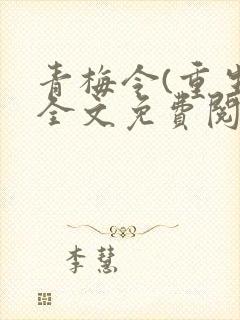 青梅令(重生
全文免費閱
李慧